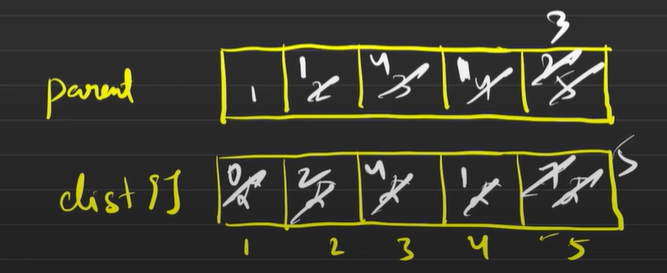 3
parent 1 1 2 4 3 1 4 2 5
dist[] 0 2 4 1 7 5
1 2 3 4 5